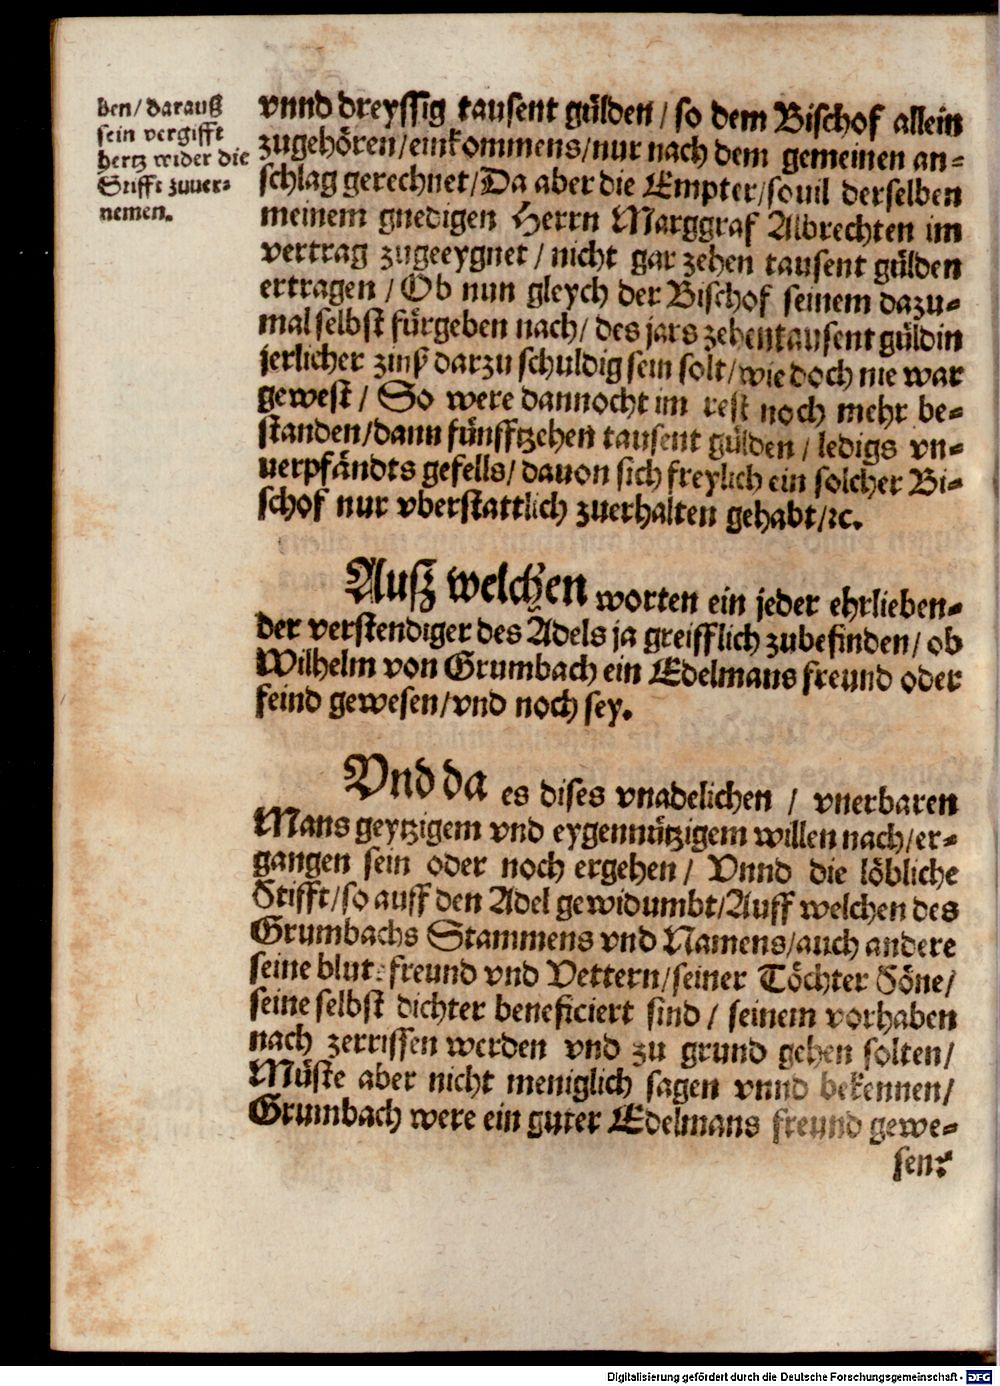 ben/ darauß
sein vergifft
hertz wider die
Stifft zuuer-
nemen.
vnnd dreyssig tausent gülden / so dem Bischof allein
zugehören/einkommens/nur nach dem gemeinen an-
schlag gerechnet/Da aber die Empter/souil derselben
meinem gnedigen Herrn Marggraf Albrechten im
vertrag zugeeygnet / nicht gar zehen tausent gülden
ertragen / Ob nun gleych der Bischof seinem dazu-
mal selbst fürgeben nach/ des jars zehentausent güldin
jerlicher zinß darzu schuldig sein solt/wie doch nie war
gewest / So were dannocht im rest noch mehr be-
standen/dann fünfftzehen tausent gülden / ledigs vn-
uerpfändts gefells/ dauon sich freylich ein solcher Bi-
schof nur vberstattlich zuerhalten gehabt/ꝛc.
Auß welchen worten ein jeder ehrlieben-
der verstendiger des Adels ja greifflich zubefinden/ ob
Wilhelm von Grumbach ein Edelmans freund oder
feind gewesen/vnd noch sey.
Vnd da es dises vnadelichen / vnerbaren
Mans geytzigem vnd eygennützigem willen nach/er-
gangen sein oder noch ergehen/ Vnnd die löbliche
Stifft/so auff den Adel gewidumbt/Auff welchen des
Grumbachs Stammens vnd Namens/auch andere
seine blutsfreund vnd Vettern/seiner Töchter Söne/
seine selbst dichter beneficiert sind / seinem vorhaben
nach zerrissen werden vnd zu grund gehen solten/
Müste aber nicht meniglich sagen vnnd bekennen/
Grumbach were ein guter Edelmans freund gewe-
sen?
Digitalisierung gefördert durch die Deutsche Forschungsgemeinschaft - DFG